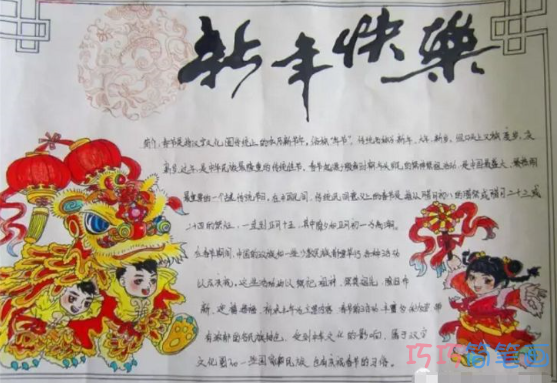 新年快樂
简介,春节是指汉字文化圈传统上的农历新年,俗称"年节",传统名称为新年、大年、新岁,但口头上又称度岁、庆
新岁、过年,是中华民族最隆重的传统佳节。春节起源于殷商时期年头岁尾的祭神祭祖活动,是中国最盛大、最热闹
最重要的一个古老传统节日。在中国民间,传统民间意义上的春节是指从腊月初八的腊祭或腊月二十三或
二十四的祭灶,一直到正月十五,其中以除夕和正月初一为高潮。
在春节期间,中国的汉族和一些少数民族都要举行各种活动
以示庆祝。这些活动均以祭祀祖神、祭奠祖先、除旧布
新、迎禧接福、祈求丰年为主要内容。春节的活动丰富多彩,
带有浓郁的各民族特色。受到中华文化的影响,属于汉字
文化圈的一些国家和民族也有庆祝春节的习俗。
巧巧简笔画